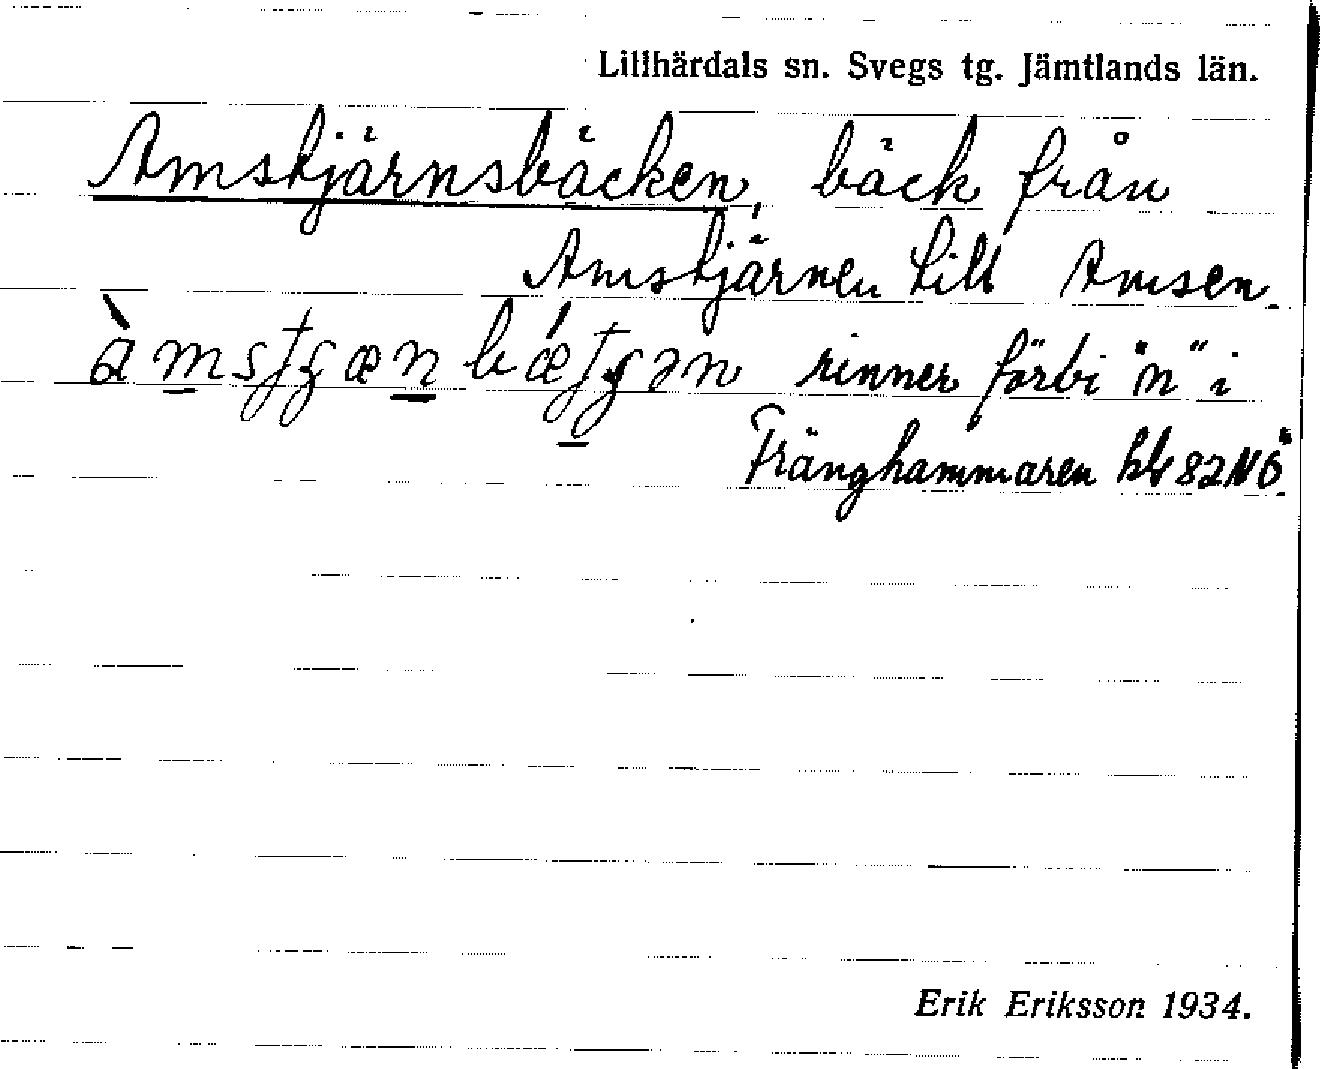 Lillhärdals sn. Svegs tg. Jämtlands län.
Amstjärnsbäcken, bäck från
Amstjärnen till Amsen.
rinner förbi "n" i
Fränghammaren bl 82 NÖ
Erik Eriksson 1934.